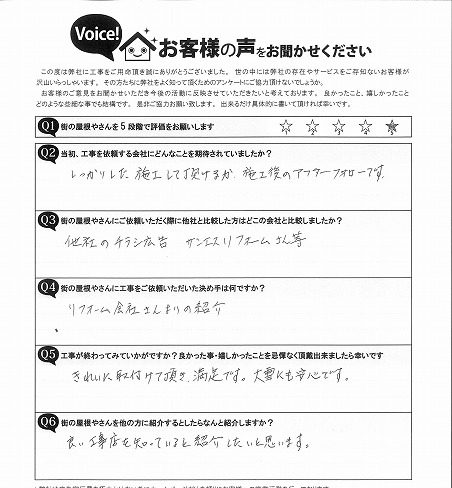 Voice!
お客様の声をお聞かせください
この度は弊社に工事をご用命頂き誠にありがとうございました。世の中には弊社の存在やサービスをご存知ないお客様が
沢山いらっしゃいます。その方たちに弊社をよく知って頂くためのアンケートにご協力頂けないでしょうか。
お客様のご意見をお聞かせいただき今後の活動に反映させていただきたいと考えております。良かったこと、嬉しかったこと
どのような些細な事でも結構です。是非ご協力お願い致します。出来るだけ具体的に書いて頂ければ幸いです。
Q1 街の屋根やさんを5段階で評価をお願いします ☆ ☆ ☆ ☆ ★
1 2 3 4 5
Q2 当初、工事を依頼する会社にどんなことを期待されていましたか?
しっかりした施工して頂けるか、施工後のアフターフォローです。
Q3 街の屋根やさんにご依頼いただく際に他社と比較した方はどこの会社と比較しましたか?
他社のチラシ広告 サンエスリフォームさん等
Q4 街の屋根やさんに工事をご依頼いただいた決め手は何ですか?
リフォーム会社さんよりの紹介
Q5 工事が終わってみていかがですか?良かった事・嬉しかったことを忌憚なく頂戴出来ましたら幸いです
きれいに取付けて頂き、満足です。大雪にも安心です。
Q6 街の屋根やさんを他の方に紹介するとしたらなんと紹介しますか?
良い工事店を知っていると紹介したいと思います。